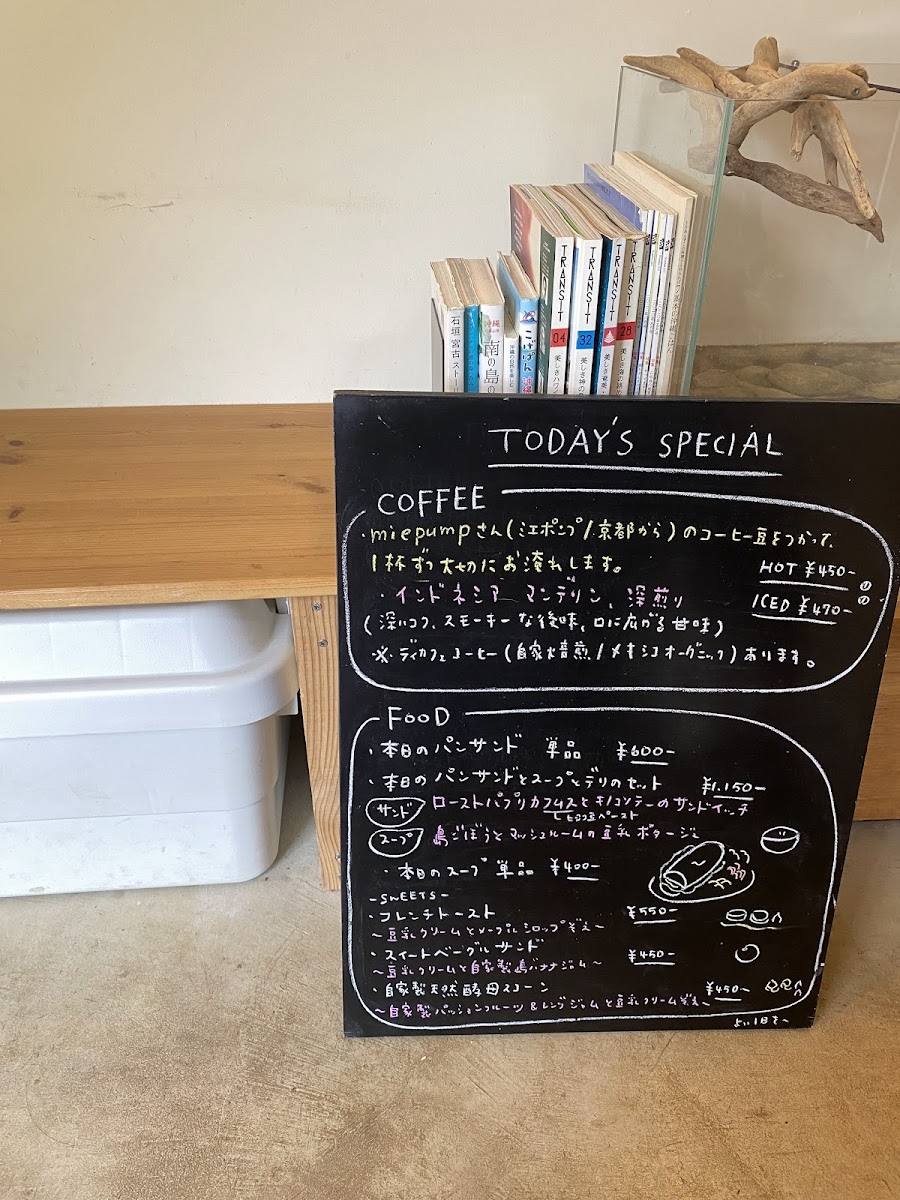 石垣 宮古 ストー
沖縄
南の島の
沖縄の自然を楽しむ
こばぱん
TRANSIT
04
美しきハワイ
TRANSIT
32
TRANSIT
TRANSIT
28
TODAY'S SPECIAL
COFFEE
・miepumpさん(ミエポンプ/京都から)のコーヒー豆をつかって、
1杯ずつ大切にお淹れします。
HOT ¥450-
・インドネシア マンデリン、深煎り
ICED ¥470-
(深いコク、スモーキーな後味、口に広がる甘味)
※ディカフェコーヒー(自家焙煎/メキシコオーガニック)あります。
FOOD
・本日のパンサンド 単品 ¥600-
・本日のパンサンドとスープとデリのセット ¥1.150-
サンド ローストパプリカフムスとキノコソテーのサンドイッチ
ヒヨコ豆ペースト
スープ 島ごぼうとマッシュルームの豆乳ポタージュ
・本日のスープ 単品 ¥400-
-SWEETS-
・フレンチトースト ¥550-
〜豆乳クリームとメープルシロップぞえ〜
・スイートベーグルサンド ¥450-
〜豆乳クリームと自家製島バナナジャム〜
・自家製天然酵母スコーン ¥450-
〜自家製パッションフルーツ&レンヴジャムと豆乳クリームぞえ〜
よい1日を〜